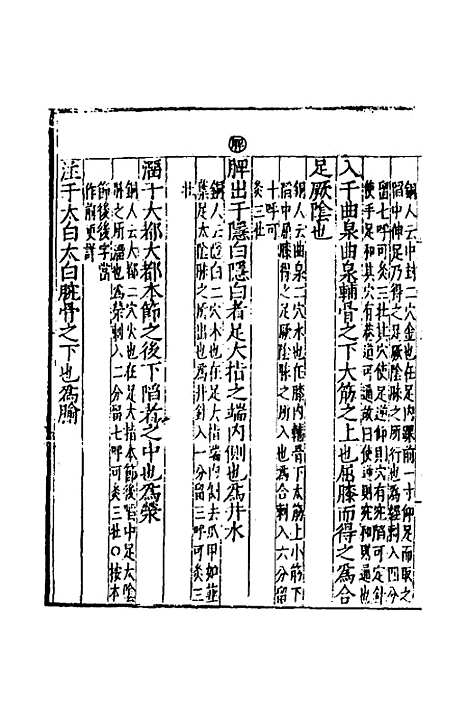 銅人云中封二穴金也在足內踝前一寸仰足而取之
陷中伸足乃得之足厥陰脉之所行也爲經刺入四分
留七呼可灸三壯注云使足逆仰則穴有宛陷可定針
使手足和其穴有巷道可通故曰使逆則宛使和則通
入于曲泉曲泉輔骨之下大筋之上也屈膝而得之爲合
足厥陰也
銅人云曲泉二穴水也在膝內輔骨下大筋上小筋下
陷中屈膝得之足厥陰脉之所入也爲合刺入六分留
十呼可
灸三壯
脾
脾出于隱白隱白者足大指之端內側也爲井木
銅人云隱白二穴木也在足大指端內側去爪甲如韭
葉足太陰脉之所出也爲井針入一分留三呼可灸三
壯
溜于大都大都本節之後下陷者之中也爲滎
銅人云大都二穴火也在足大指本節後陷中足太陰
脉之所溜也爲滎刺入二分留七呼可灸三壯○按本
節後後字當
作前更詳
注于太白太白腕骨之下也爲腧